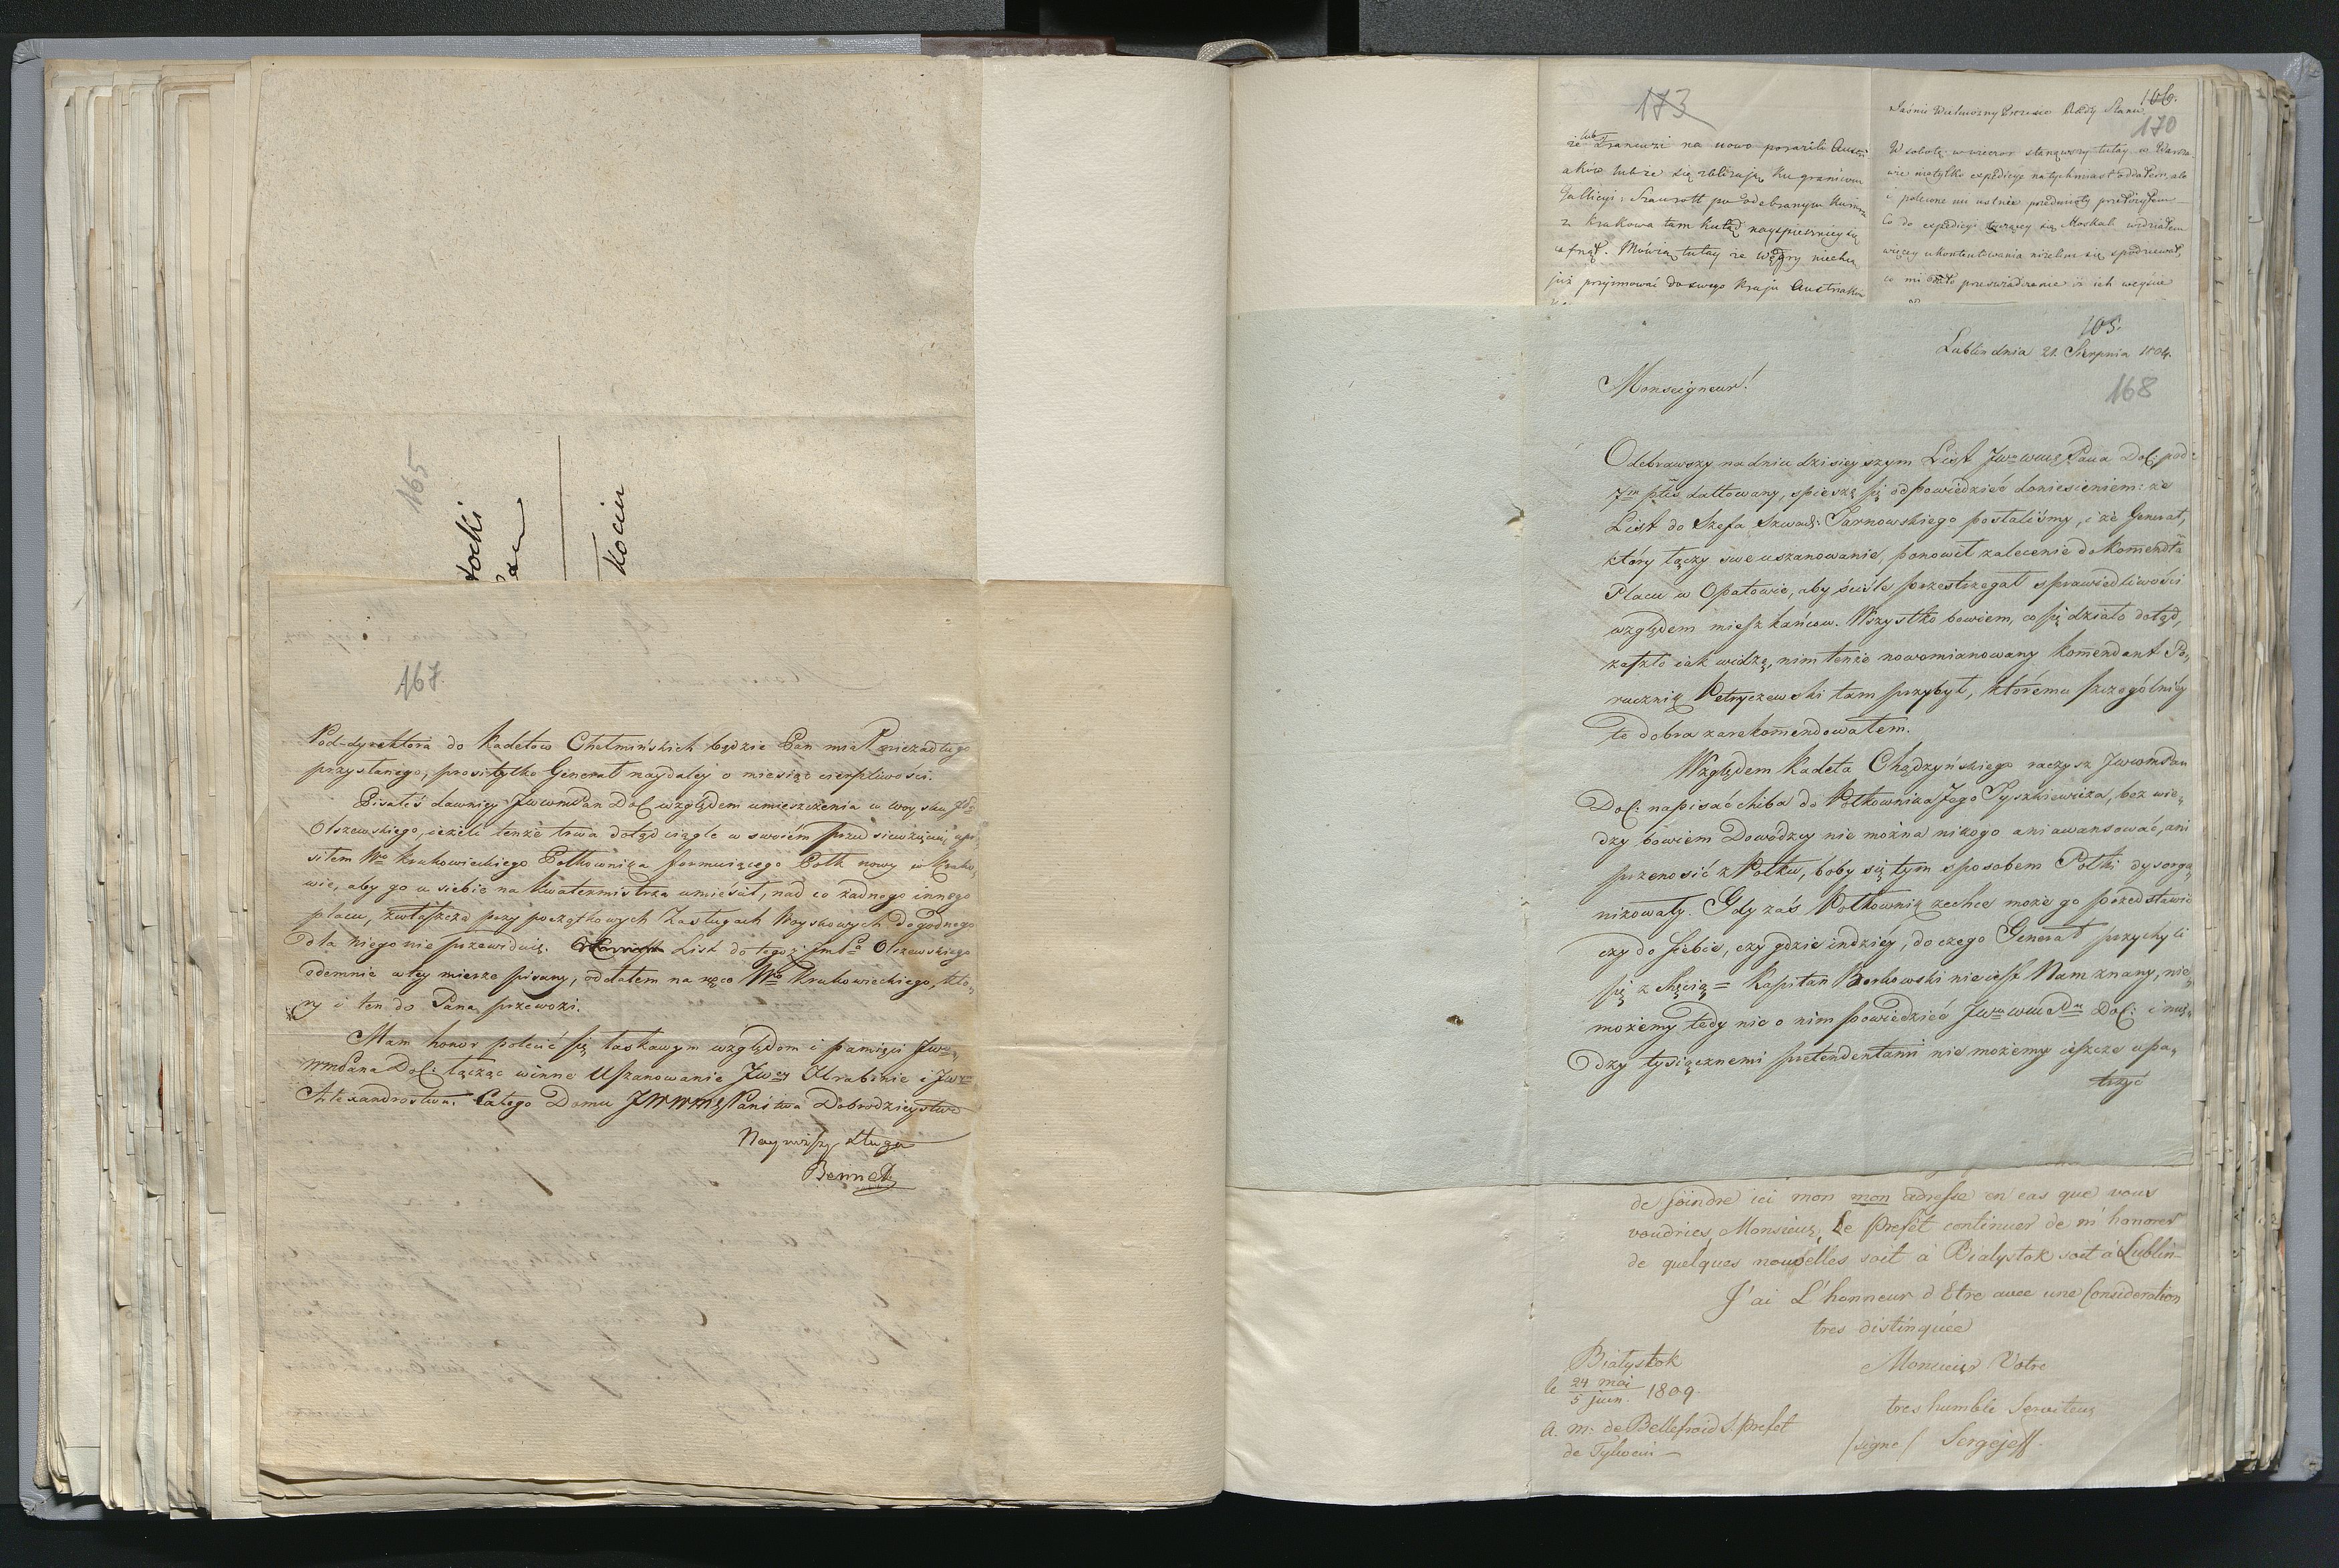 165
tocki
Kocin
167
Pod-dyrektora do Kadetow Chełmińskich będzie Pan miał niezadługo
przysłanego, prosi tylko Generał naydaley o miesiąc cierpliwości.
Pisałeś dawniey JWWMPan Dob: względem umieszczenia w woysku
Olszewskiego, ieżeli tenże trwa dotąd ciągle w swoiém przedsiewzięciu, upro-
siłem Wo Krukowieckiego Półkownika formuiącego Półk nowy w Krako,
wie, aby go u siebie na Kwatermistrza umieścił, nad co żadnego innego
placu, zwłaszcza przy początkowych Zasługach Woyskowych dogodnego
dla niego nie przewiduię. List do tegoż JmPa Olszewskiego
odemnie w tey mierze pisany, oddałem na ręce Wo Krukowieckiego, któ,
ry i ten do Pana przewozi.
Mam honor polecić się łaskawym względom i pamięci JW
WMPana Dob: łącząc winne Uszanowanie JWey Hrabinie i JW
Alexandrostwu. Całego Domu JWWMPaństwa Dobrodzieystwa
Nayniższy sługa
Bennet
173
że lub Francuzi na nowo porazili Austri
aków lub że się zbliżają ku granicom
Gallicyi; Szaurott po odebranym kurierze
z Krakowa tam kutąd nayspieszniey się
cofnął. Mówią tutay że Węgry niechcą
już przyimować do swego kraju Austriaków
106.
Jaśnie Wielmożny Prezesie Rady Stanu
170
W sobotę w wieczor stanąwszy tutay w Warsza-
wie nietylko expedicye natychmiast oddałem, ale
i polecone mi ustnie przedmioty przełożyłem
Co do expedicyi tyczącey się Moskali widziałem
więcey ukontentowania niżelim się spodziewał,
co mi dało przeświadczenie iż ich weyście
105.
Lublin dnia 21. Sierpnia 1809.
168
Monseigneur!
Odebrawszy na dniu dzisieyszym List JWo WMPana Dob: pod
7m ptis dattowany, spieszę się odpowiedzieć doniesieniem: że
List do Szefa Szwad: Tarnowskiego posłaliśmy, i że Generał,
który łączy swe uszanowanie, ponowił zalecenie do Komendta
Placu w Opatowie, aby ściśle przestrzegał sprawiedliwości
względem mieszkańcow. Wszystko bowiem, co się działo dotąd,
zaszło iak widzę, nim tenże nowomianowany Komendant Po,
rucznik Petryczewski tam przybył, któremu szczególniéy
te dobra zarekomendowałem.
Względem Kadeta Chądzyńskiego raczysz JWWMPan
Dob: napisać chiba do Półkownika Jego Tyszkiewicza, bez wie,
dzy bowiem Dowódzcy nie można nikogo ani awansować, ani
przenosić z Półku, boby się tym sposobem Półki dysorga,
nizowały. Gdy zaś Półkownik zechce może go przedstawić
czy do siebie, czy gdzie indziéy, do czego Generał przychyli
się z chęcią = Kapitan Borkowski nie iest Nam znany, nie,
możemy tedy nic o nim powiedzieć JWu WMPu Dob: i mię,
dzy tysiącznemi pretendentami nie możemy ieszcze upa,
trzyć
de joindre ici mon mon adresse en cas que vous
voudries, Monsieur, Le Prefét continuer de m'honorer
de quelques nouvélles soit à Bialystok soit à Lublin
J'ai L'honneur d'Etre avec une Consideration
tres distinquée
Bialystok
Monsieur Votre
le 24 mai / 5 juin. 1809.
tres humble Serviteur
A. M: de Bellefroid S. Prefet
/signe/ Sergejeff.
de